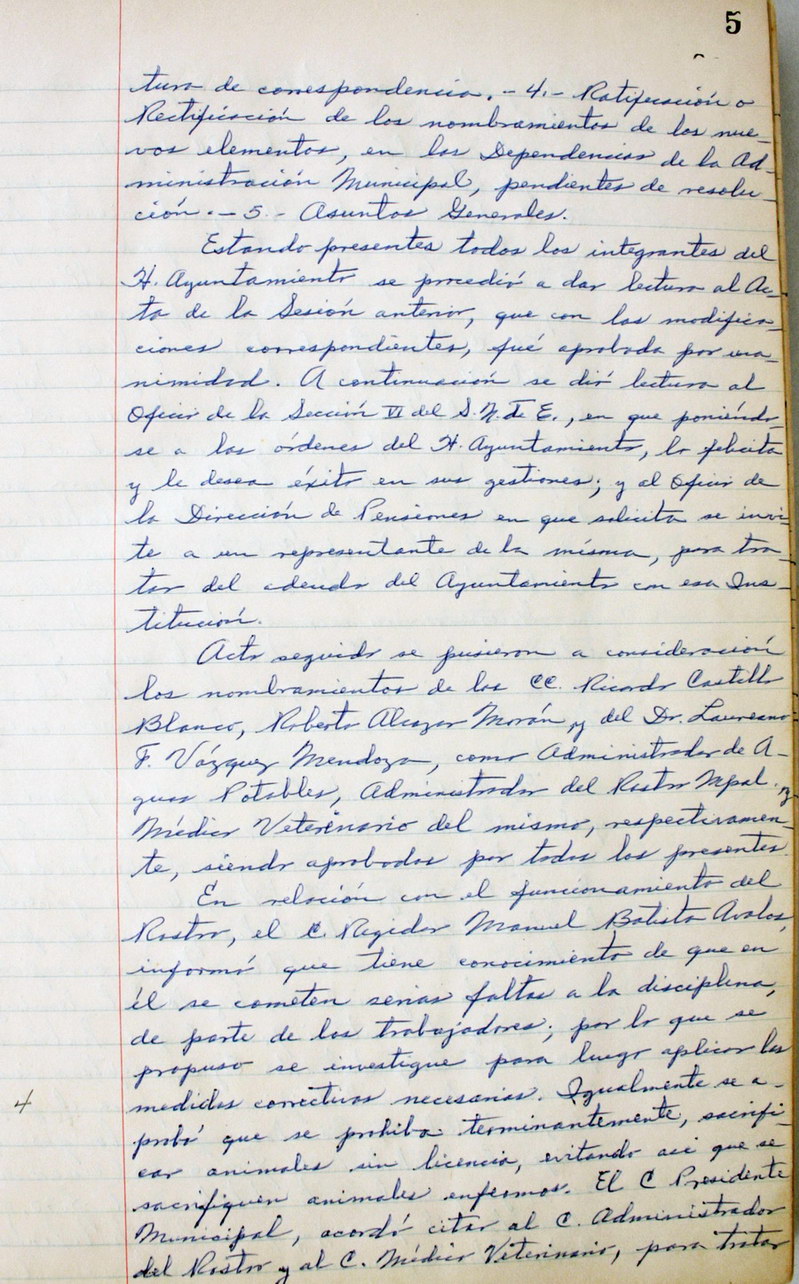 5
tura de correspondencia. - 4. - Ratificación o
Rectificación de los nombramientos de los nue-
vos elementos, en las Dependencias de la Ad-
ministración Municipal, pendientes de resolu-
ción. - 5 - Asuntos Generales.
Estando presentes todos los integrantes del
H. Ayuntamiento se procedió a dar lectura al Ac-
ta de la Sesión anterior, que con las modifica-
ciones correspondientes, fué aprobada por una-
nimidad. A continuación se dió lectura al
Oficio de la Sección VI del S.N.T.E., en que poniéndo-
se a las órdenes del H. Ayuntamiento, lo felicita
y le desea éxito en sus gestiones; y al Oficio de
la Dirección de Pensiones en que solicita se invi-
te a un representante de la misma, para tra-
tar del adeudo del Ayuntamiento con esa Ins-
titución.
Acto seguido se pusieron a consideración
los nombramientos de los CC. Ricardo Castillo
Blanco, Roberto Alcazar Morán y del Dr. Laureano
F. Vázquez Mendoza, como Administrador de A-
guas Potables, Administrador del Rastro Mpal. y
Médico Veterinario del mismo, respectivamen-
te, siendo aprobados por todos los presentes.
En relación con el funcionamiento del
Rastro, el C. Regidor Manuel Batista Avalos,
informó que tiene conocimiento de que en
él se cometen serias faltas a la disciplina,
de parte de los trabajadores; por lo que se
propuso se investigue para luego aplicar las
4 medidas correctivas necesarias. Igualmente se a-
probó que se prohiba terminantemente, sacrifi-
car animales sin licencia, evitando asi que se
sacrifiquen animales enfermos. El C Presidente
Municipal, acordó citar al C. Administrador
del Rastro y al C. Médico Veterinario, para tratar